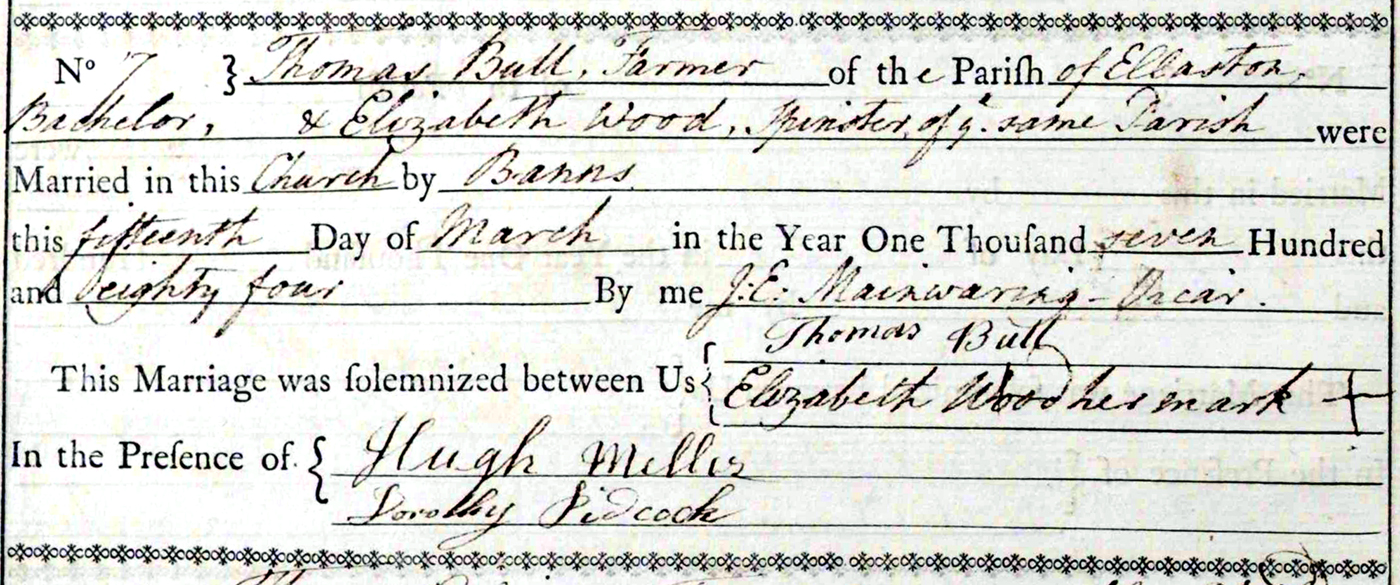 No 7 } Thomas Bull, Farmer of the Pariſh of Ellaston,
Bachelor, & Elizabeth Wood, Spinster, of ye. same Parish were
Married in this Church by Banns
this fifteenth Day of March in the Year One Thouſand seven Hundred
and eighty four By me J: E: Mainwaring - Vicar.
Thomas Bull
This Marriage was ſolemnized between Us {
Elizabeth Wood her mark +
In the Preſence of { Hugh
Dorothy Pidcock